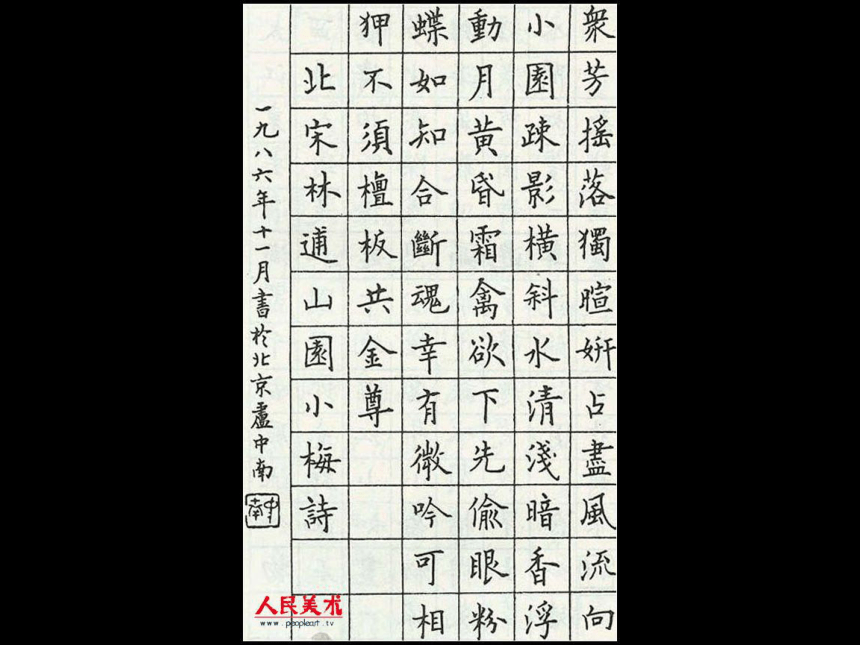 衆芳搖落獨暄妍占盡風流向
小園疎影橫斜水清淺暗香浮
動月黃昏霜禽欲下先偷眼粉
蝶如知合斷魂幸有微吟可相
狎不須檀板共金尊
北宋林逋山園小梅詩
一九八六年十一月書於北京盧中南
中南
人民美术
www.peopleart.tv